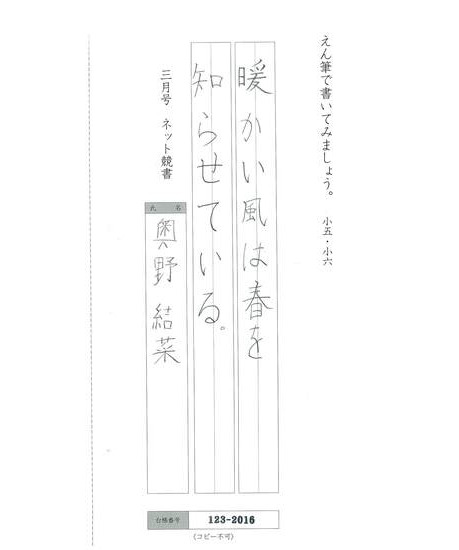 えん筆で書いてみましょう。 小五・小六
暖かい風は春を
知らせている。
三月号 ネット競書
氏 名
奥野 結菜
台帳番号 123-2016
(コピー不可)